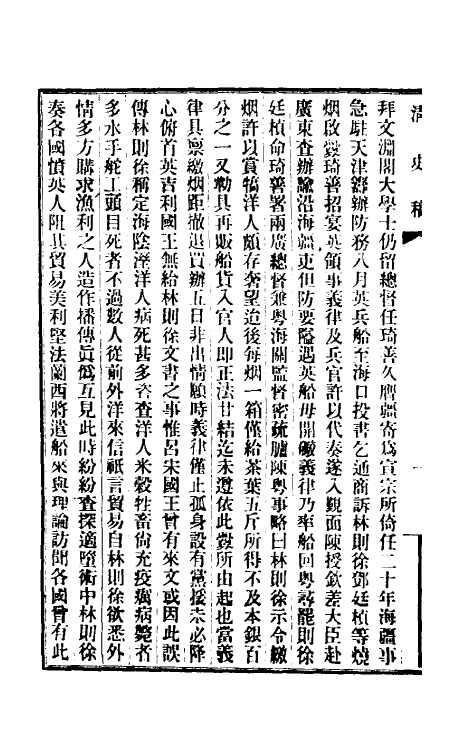 清史稿
拜文淵閣大學士仍留總督任琦善久膺疆寄爲宣宗所倚任二十年海疆事
急駐天津籌辦防務八月英兵船至海口投書乞通商訴林則徐鄧廷楨等燒
烟啟釁琦善招宴英領事義律及兵官許以代奏遂入覲面陳授欽差大臣赴
廣東查辦諭沿海疆吏但防要隘遇英船毋開礮義律乃率船回粵尋罷則徐
廷楨命琦善署兩廣總督兼粵海關監督密疏臚陳粵事略曰林則徐示令繳
烟許以賞犒洋人頗存奢望迨後每烟一箱僅給茶葉五斤所得不及本銀百
分之一又勒具再販船貨入官人即正法甘結迄未遵依此釁所由起也當義
律具禀繳烟距撤退買辦五日非出情願時義律僅止孤身設有黨援未必降
心俯首英吉利國王無給林則徐文書之事惟呂宋國王曾有來文或因此誤
傳林則徐稱定海陰溼洋人病死甚多咨查洋人米穀牲畜尙充疫癘病斃者
多水手舵工頭目死者不過數人從前外洋來信祇言貿易自林則徐欲悉外
情多方購求漁利之人造作播傳眞僞互見此時紛紛查探適墮術中林則徐
奏各國憤英人阻其貿易美利堅法蘭西將遣船來與理論訪聞各國曾有此